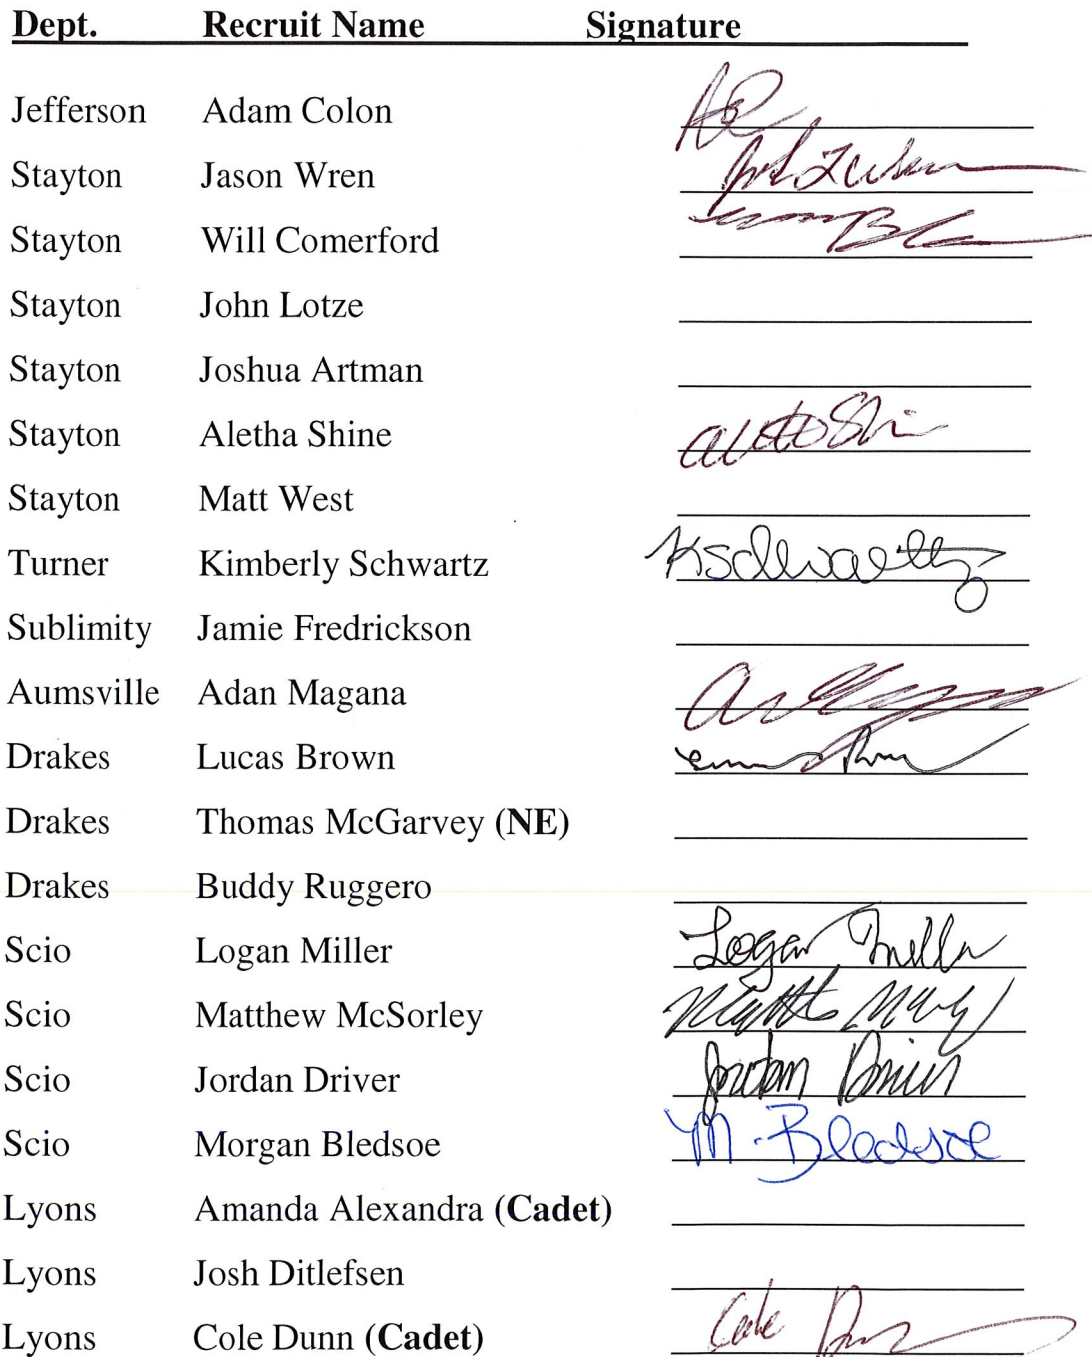 Dept. Recruit Name Signature
Jefferson Adam Colon
Stayton Jason Wren
Stayton Will Comerford
Stayton John Lotze
Stayton Joshua Artman
Stayton Aletha Shine
Stayton Matt West
Turner Kimberly Schwartz KSchwartz
Sublimity Jamie Fredrickson
Aumsville Adan Magana
Drakes Lucas Brown
Drakes Thomas McGarvey (NE)
Drakes Buddy Ruggero
Scio Logan Miller Logan Miller
Scio Matthew McSorley
Scio Jordan Driver Jordan Driver
Scio Morgan Bledsoe M. Bledsoe
Lyons Amanda Alexandra (Cadet)
Lyons Josh Ditlefsen
Lyons Cole Dunn (Cadet) Cole Dunn